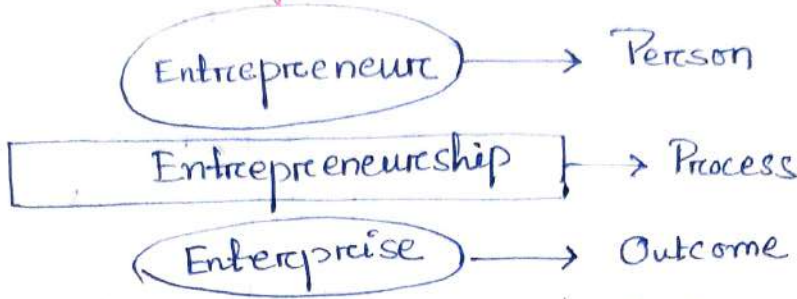 Entrepreneur → Person
Entrepreneureship → Process
Enterprise → Outcome